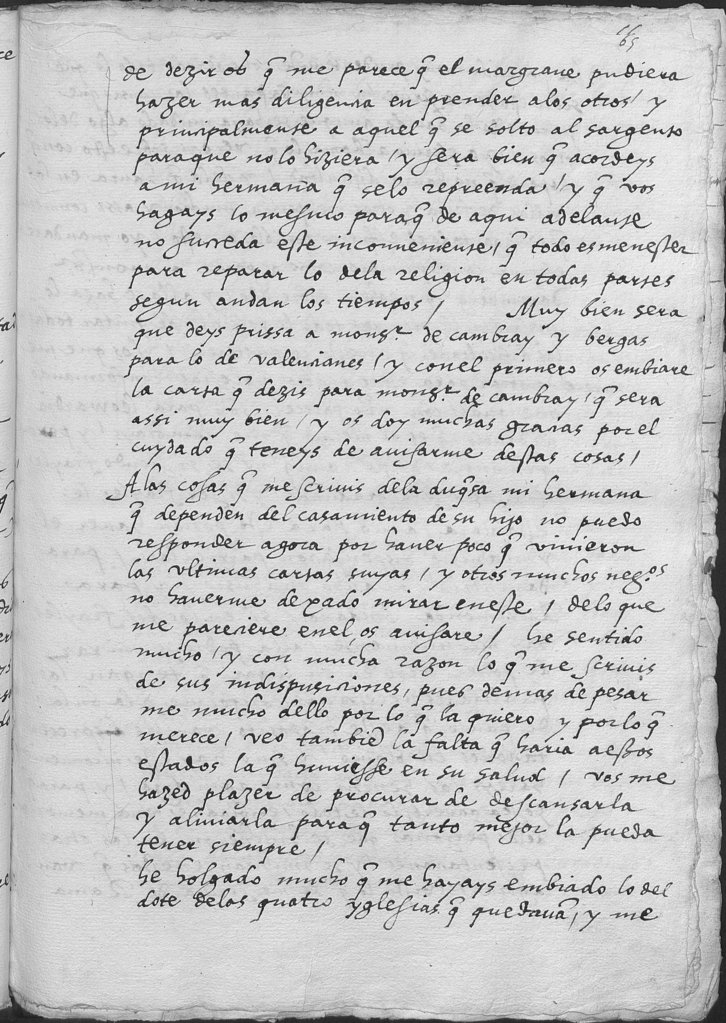 65
de dezir os q̃ me parece q̃ el margraue pudiera
hazer mas diligencia en prender a los otros / y
principalmente a aquel q̃ se solto al sargento
paraque no lo hiziera / y sera bien q̃ acordeys
a mi hermana q̃ se lo reprenda / y q̃ vos
hagays lo mesmo paraq̃ de aqui adelante
no suceda este inconueniente / q̃ todo es menester
para reparar lo dela religion en todas partes
segun andan los tiempos / Muy bien sera
que deys prissa a monsr. de cambray y bergas
para lo de valencianes / y con el primero os embiare
la carta q̃ dezis para monsr. de cambray / q̃ sera
assi muy bien / y os doy muchas gracias por el
cuydado q̃ teneys de auisarme destas cosas /
A las cosas q̃ me scriuis dela duq̃sa mi hermana
q̃ dependen del casamiento de su hijo no puedo
responder agora por hauer poco q̃ vinieron
las vltimas cartas suyas / y otros muchos negos
no hauerme dexado mirar en este / de lo que
me pareciere en el os auisare / he sentido
mucho / y con mucha razon lo q̃ me scriuis
de sus indispusiciones, pues demas de pesar
me mucho dello por lo q̃ la quiero y por lo q̃
merece / veo tambien la falta q̃ haria a essos
estados la q̃ huuiesse en su salud / vos me
hazed plazer de procurar de descansarla
y aliuiarla para q̃ tanto mejor la pueda
tener siempre /
he holgado mucho q̃ me hayays embiado lo del
dote de las quatro yglesias q̃ quedauã, y me